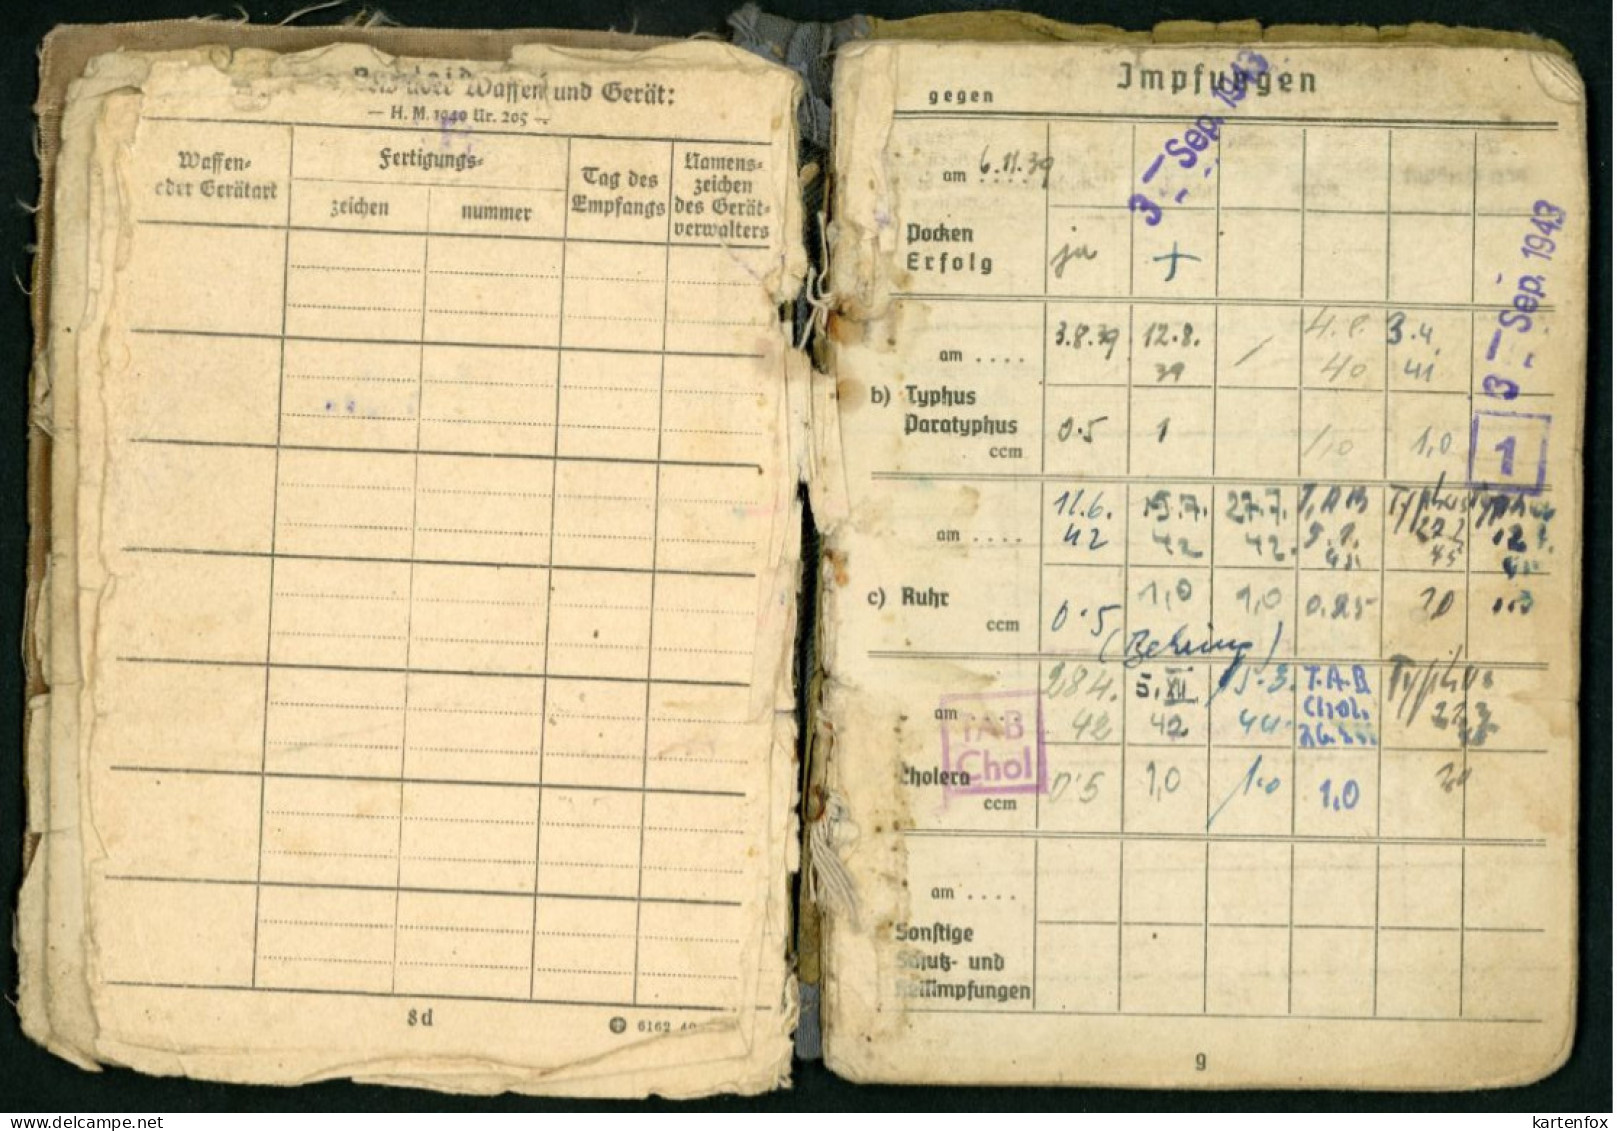 über Waffen und Gerät:
— H. M. 1940 Nr. 205 —
Waffen-
oder Gerätart
Fertigungs-
zeichen
nummer
Tag des
Empfangs
Namens-
zeichen
des Gerät-
verwalters
8d
6162 40
Impfungen
gegen
3 - Sep. 1943
am 6.11.39
Pocken
Erfolg
ja +
3 - Sep. 1943
am . . . .
3.8.39 12.8.39 / 4.8.40 3.4.41
b) Typhus
Paratyphus
ccm
0.5 1 1,0 1,0
1
am . . . .
11.6.42 15.7.42 27.7.42. T.A.B Typhus Typhus
c) Ruhr
ccm
0.5 1,0 1,0 0.25
(Behring)
am
28 4. 42 5. XII 42 15.3. 44. T.A.B Chol. Typhus
TAB
Chol
Cholera
ccm
0.5 1,0 1.0 1,0
am . . . .
Sonstige
Schutz- und
Heilimpfungen
9
kartenfox